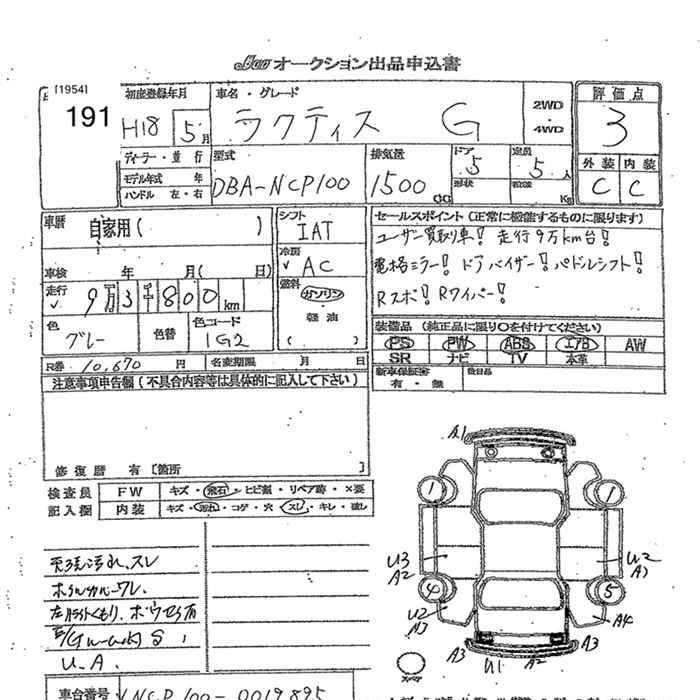 Jaa オークション出品申込書
[1954]
191
初度登録年月 車名・グレード 評価点
H18 5月 ラクティス G 2WD・4WD 3
ディーラー・並行 型式 排気量 ドア 定員 外装 内装
モデル年式 年 DBA-NCP100 1500 CC 5 形状 5人 Kg C C
ハンドル 左・右
車歴 自家用( ) シフト IAT セールスポイント(正常に機能するものに限ります)
冷房 AC ユーザー買取り車! 走行9万km台!
車検 年 月( 日) 電格ミラー! ドアバイザー! パドルシフト!
走行 9万3千800km 燃料 ガソリン・軽油 ( ) Rスポ! Rワイパー!
色 グレー 色替 色コード 1G2 装備品(純正品に限り○を付けてください)
PS PW ABS エアB AW
R券 10,670円 名変期限 月 日 SR ナビ TV 本革
注意事項申告欄(不具合内容等は具体的に記入して下さい) 新車保証書 有・無 後日品
修復歴 有[箇所 ]
検査員 FW キズ・飛石・ヒビ割・リペア跡・×要
記入欄 内装 キズ・汚れ・コゲ・穴・スレ・キレ・
汚れ、スレ
ホイルカバーワレ、
左ライトくもり、
S
U.A.
車台番号 NCP100-0019895
A1
1 1
U3 U2
A2 A1
4 5
U2 A4
A1
A3 U1 A2 A3
スペア